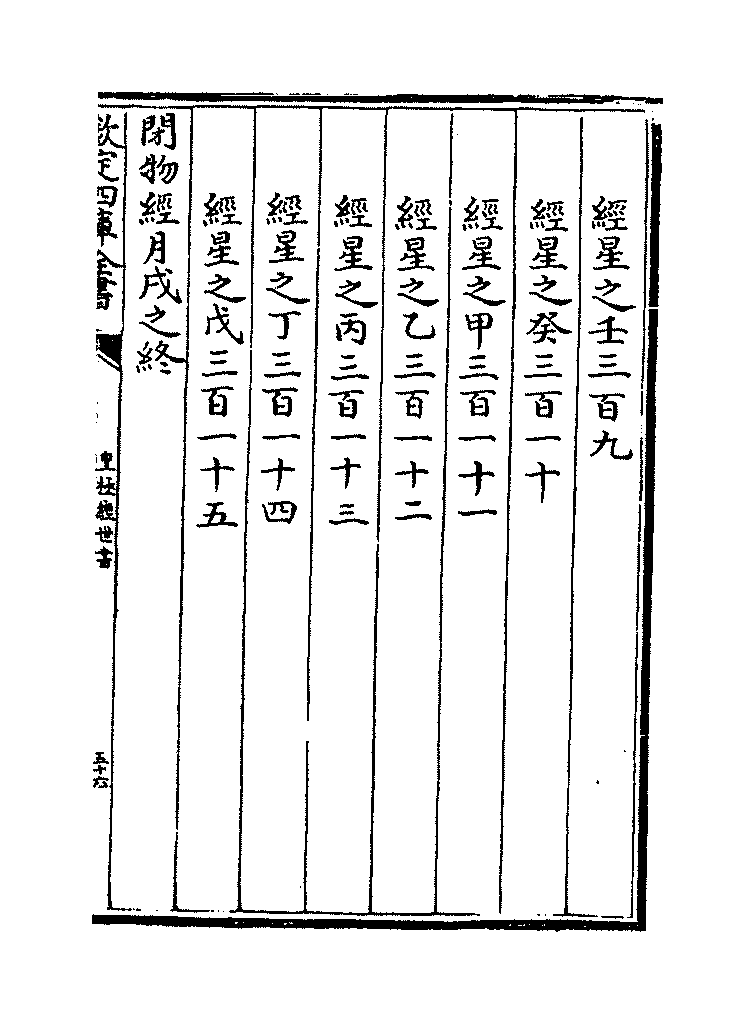 經星之壬三百九
經星之癸三百一十
經星之甲三百一十一
經星之乙三百一十二
經星之丙三百一十三
經星之丁三百一十四
經星之戊三百一十五
閉物經月戌之終
欽定四庫全書
皇極經世書
五十六